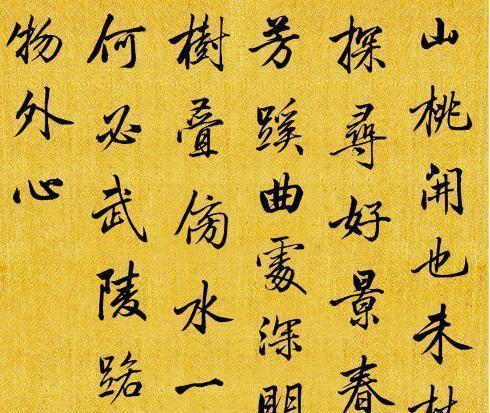 山桃開也未
探尋好景春
芳蹊曲處深
樹疊傍水一
何必武陵
物外心